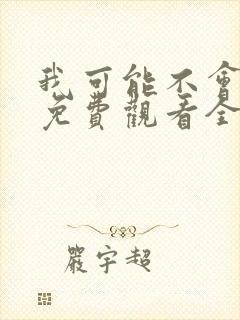 我可能不會
免費觀看全
嚴宇超